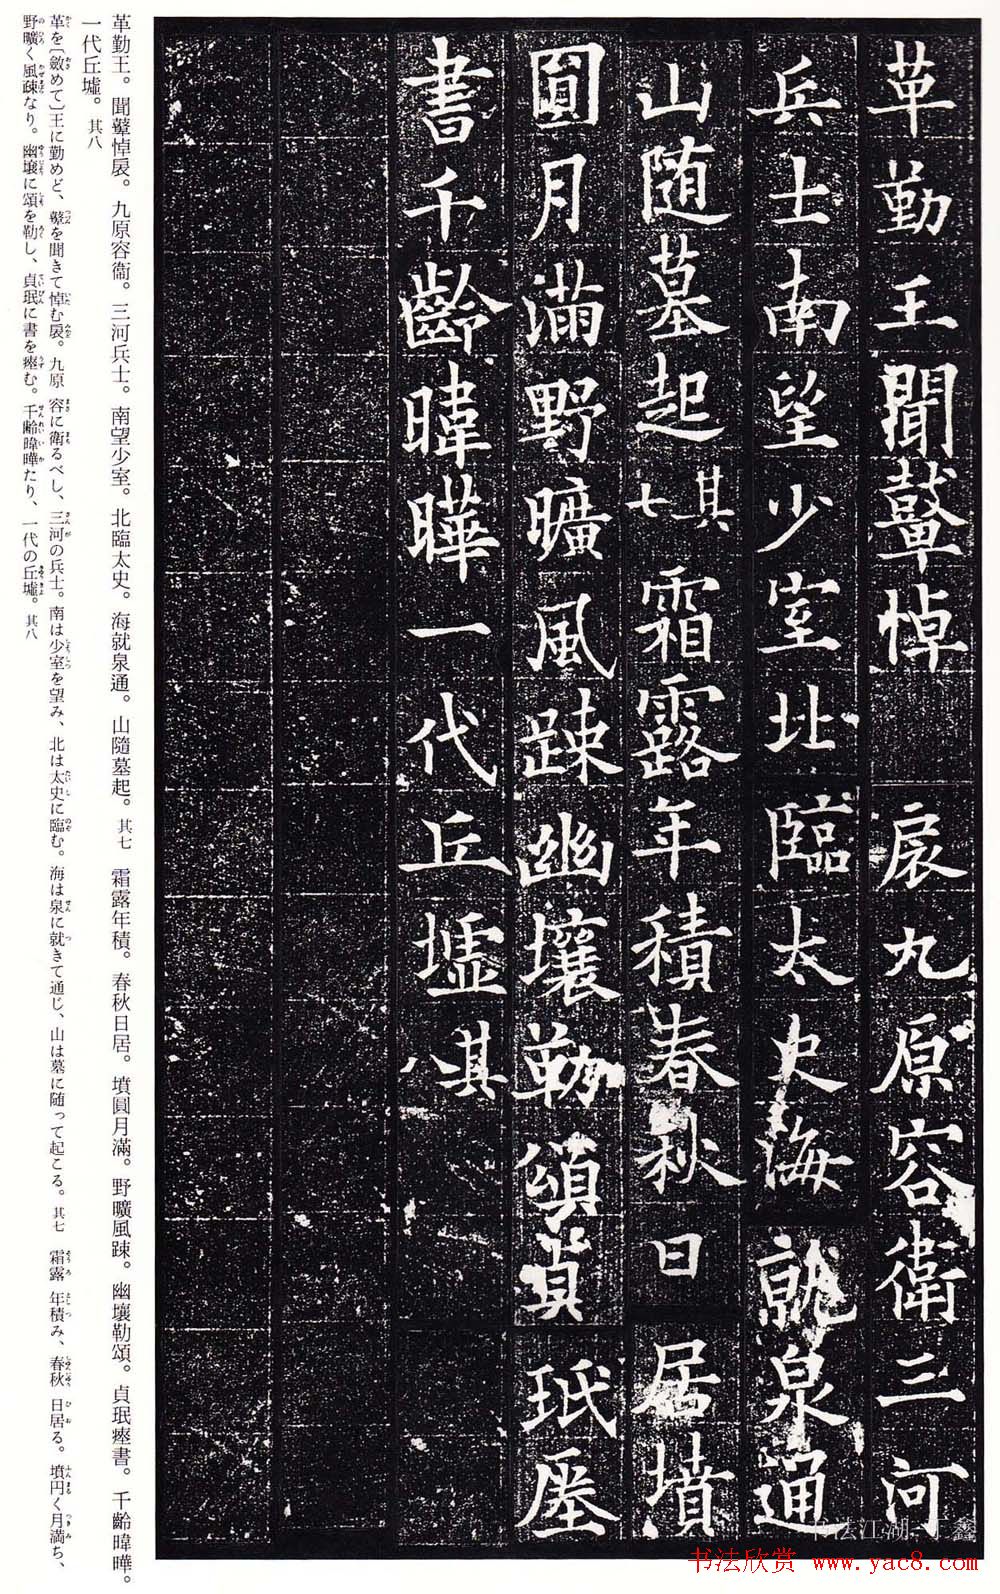 革勤王聞鼙悼扆九原容衛三河
兵士南望少室北臨太史海就泉通
山随墓起其七霜露年積春秋日居墳
圓月滿野曠風踈幽壤勒頌貞珉瘞
書千齡暐曄一代丘墟其八
革勤王。聞鼙悼扆。九原容衞。三河兵士。南望少室。北臨太史。海就泉通。山隨墓起。其七 霜露年積。春秋日居。墳圓月滿。野曠風踈。幽壤勒頌。貞珉瘞書。千齡暐曄。
一代丘墟。其八
革を〔斂めて〕王に勤めど、鼙を聞きて悼む扆。九原 容に衛るべし、三河の兵士。南は少室を望み、北は太史に臨む。海は泉に就きて通じ、山は墓に随って起こる。其七 霜露 年積み、春秋 日居る。墳円く月満ち、
野曠く風踈なり。幽壌に頌を勒し、貞珉に書を瘞む。千齢暐曄たり、一代の丘墟。其八
书法江湖 丁鑫
书法欣赏 www.yac8.com